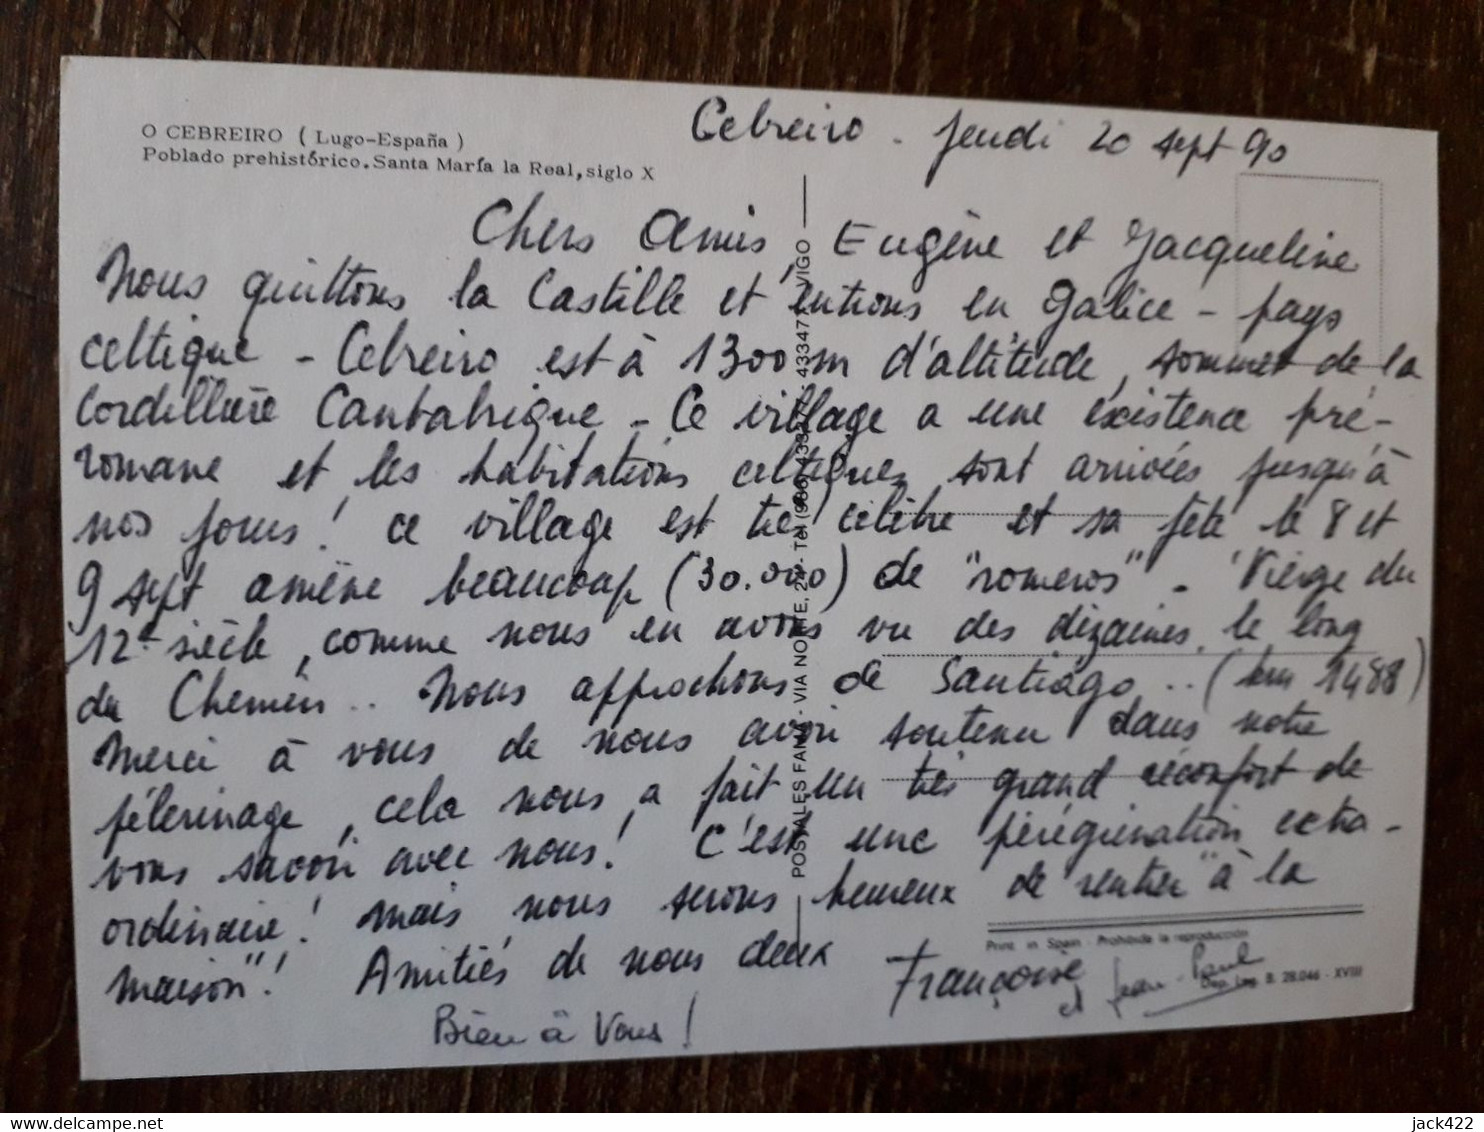 O CEBREIRO ( Lugo-España )
Poblado prehistórico. Santa María la Real, siglo X
Cebreiro - Jeudi 20 sept 90
Chers Amis, Eugène et Jacqueline
Nous quittons la Castille et entrons en Galice - pays
celtique - Cebreiro est à 1300 m d'altitude, sommet de la
Cordillère Cantabrique - Ce village a une existence pré-
romane et les habitations celtiques sont arrivées jusqu'à
nos jours! ce village est très célèbre et sa fête le 8 et
9 sept amène beaucoup (30.000) de "romeros" - Vierge du
12e siècle, comme nous en avons vu des dizaines, le long
du Chemin .. Nous approchons de Santiago .. (km 1488)
Merci à vous de nous avoir soutenu dans notre
pélerinage, cela nous a fait un très grand réconfort de
vous savoir avec nous! C'est une pérégrination extra-
ordinaire! mais nous serons heureux de "rentrer" à la
maison"! Amitiés de nous deux Françoise
et Jean-Paul
Bien à Vous!
POSTALES FAMA - VIA NORTE, 24 - Tel (986) 433471 - VIGO
Print. in Spain - Prohibida la reproducción
Dep. Leg. B. 28.046 - XVIII
delcampe.net
jack422